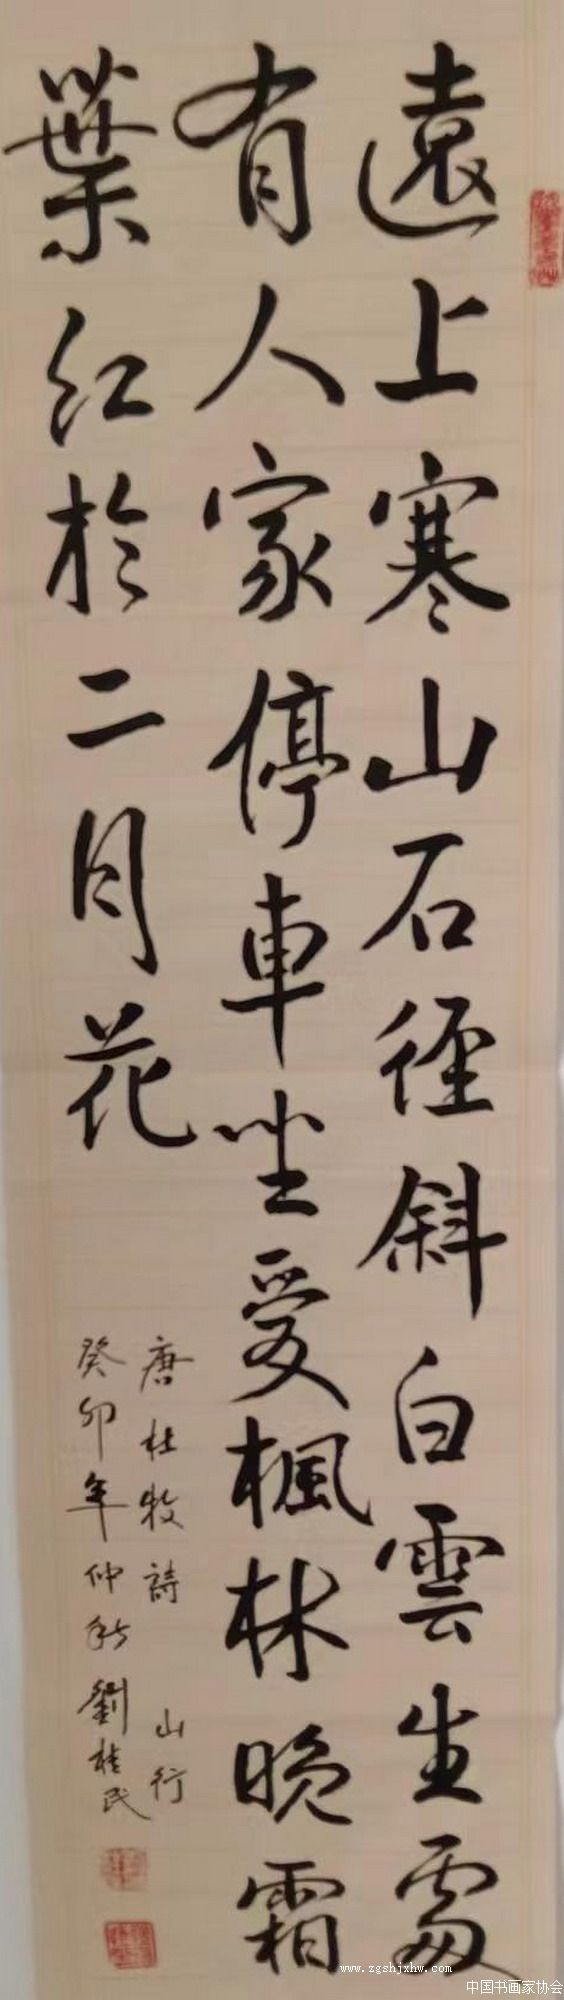 遠上寒山石徑斜白雲生處
有人家停車坐愛楓林晚霜
葉红於二月花
唐杜牧詩 山行
癸卯年仲秋劉桂民
www.zgshjxhw.com
中国书画家协会